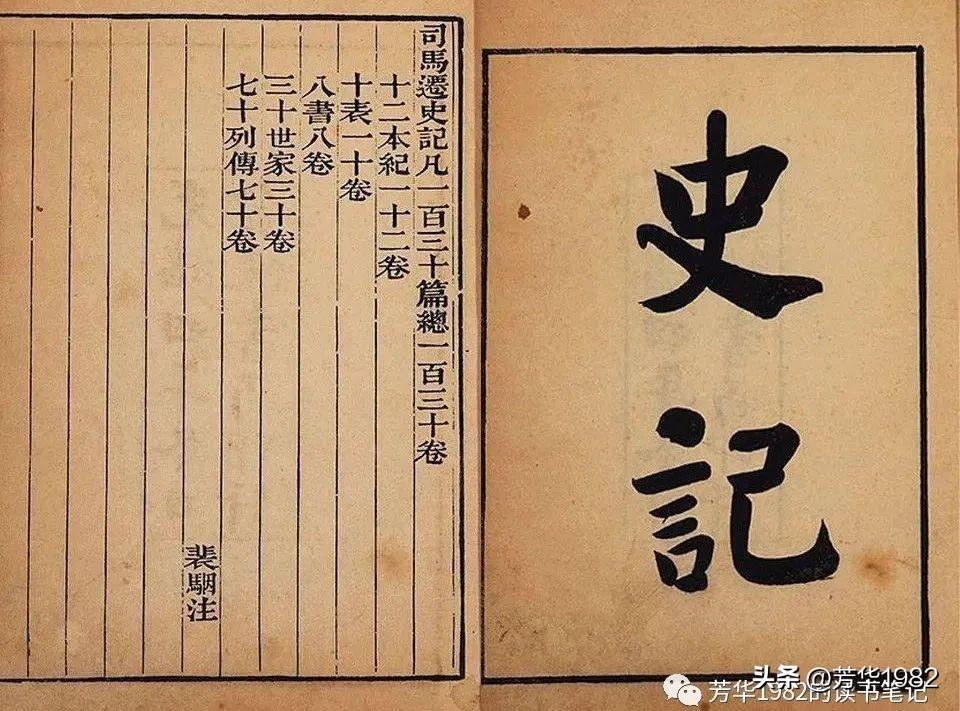 史記
司馬遷史記凡一百三十篇總一百三十卷
十二本紀一十二卷
十表一十卷
八書八卷
三十世家三十卷
七十列傳七十卷
裴駰注
头条 @芳华1982
芳华1982的读书笔记